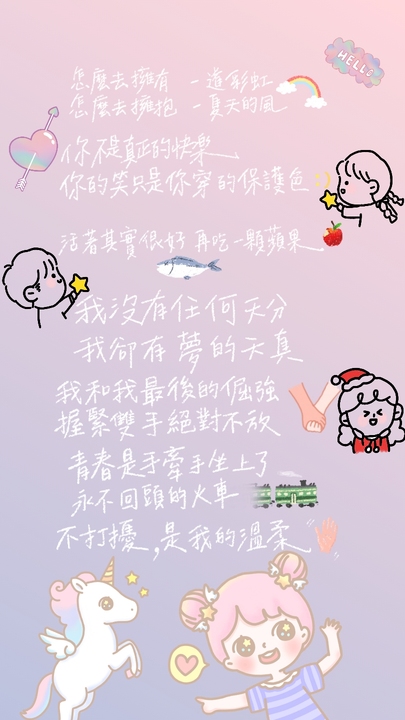 HELLO
怎麼去擁有 一道彩虹
怎麼去擁抱 一夏天的風
你不是真正的快樂
你的笑只是你穿的保護色:)
活著其實很好 再吃一顆蘋果
我沒有任何天分
我卻有夢的天真
我和我最後的倔強
握緊雙手絕對不放
青春是手牽手坐上了
永不回頭的火車
不打擾,是我的溫柔